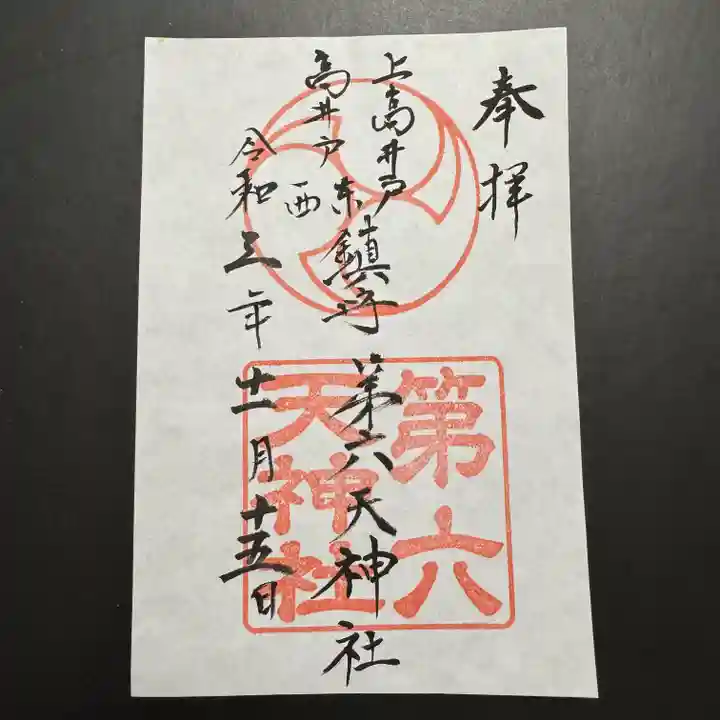 奉拝
上高井戸
高井戸東西
鎮守
第六天神社
令和三年十一月十五日
第六
天神社